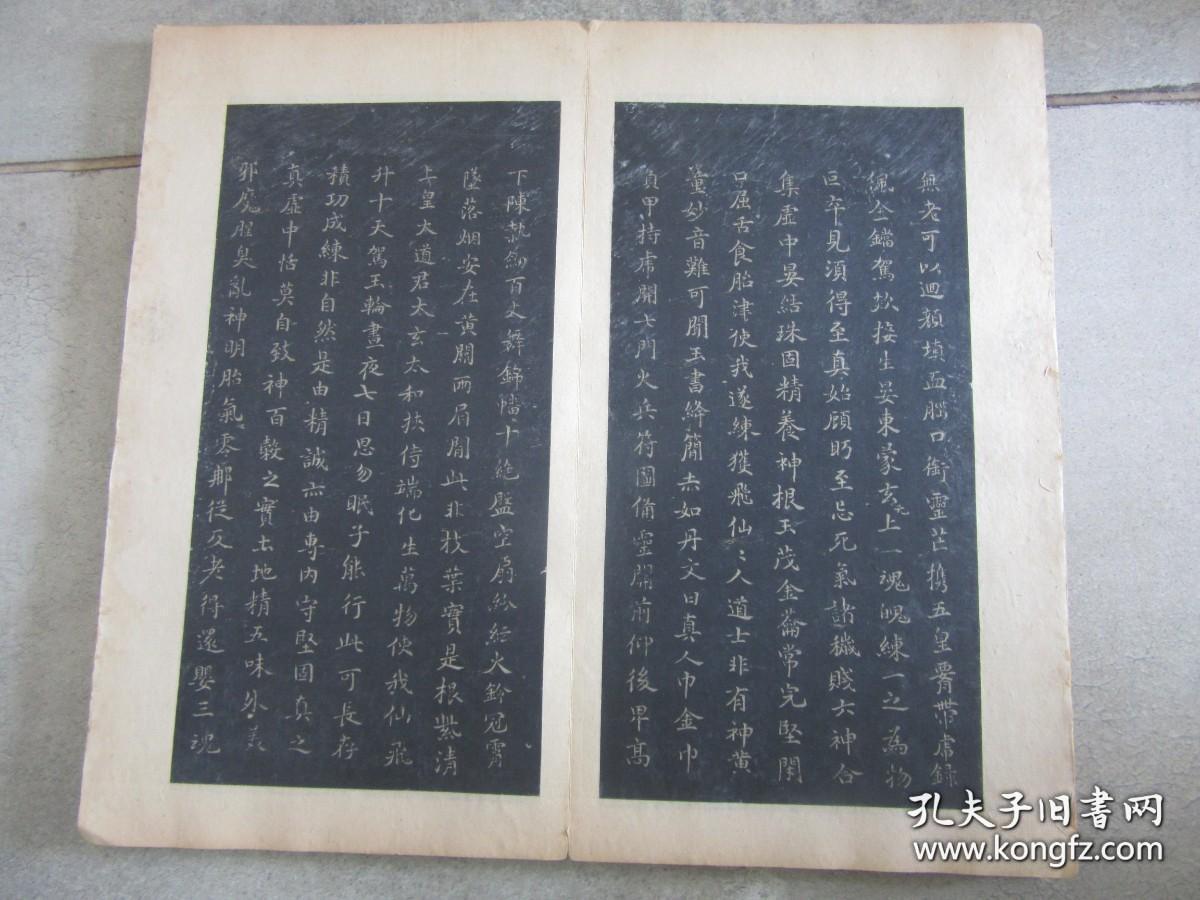 無老可以迴顏填血腦口銜靈芒携五皇腰帶虎錄
佩金鐺駕欻接生宴東蒙玄上一魂魄練一之為物
叵卒見須得至真始顧眄至忌死氣諸穢賤六神合
集虛中晏結珠固精養神根玉茂金籥常完堅閇
口屈舌食胎津使我遂練獲飛仙ミ人道士非有神黄
童妙音難可聞玉書絳簡赤如丹文曰真人巾金巾
負甲持虎開七門火兵符圖備靈關前仰後卑高
下陳執劍百丈舞錦幡十絶盤空扇紛紜火鈴冠霄
墜落烟安在黄闕兩眉間此非枝葉實是根紫清
上皇大道君太玄太和挾侍端化生萬物使我仙飛
升十天駕玉輪晝夜七日思勿眠子能行此可長存
積功成練非自然是由精誠亦由專内守堅固真之
真虛中恬莫自致神百穀之實土地精五味外美
邪魔腥臭亂神明胎氣零那從反老得還嬰三魂
孔夫子旧书网
www.kongfz.com